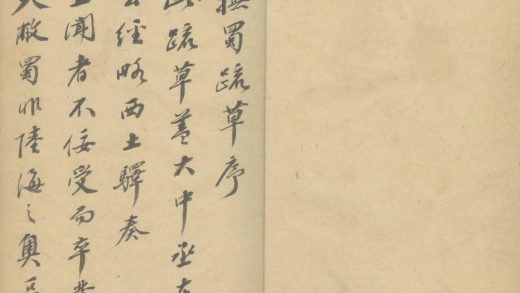 撫蜀疏草序
此疏草蓋大中丞
公經略西土驛奏
上聞者不佞受而卒業
夫敝蜀非陸海之奧區